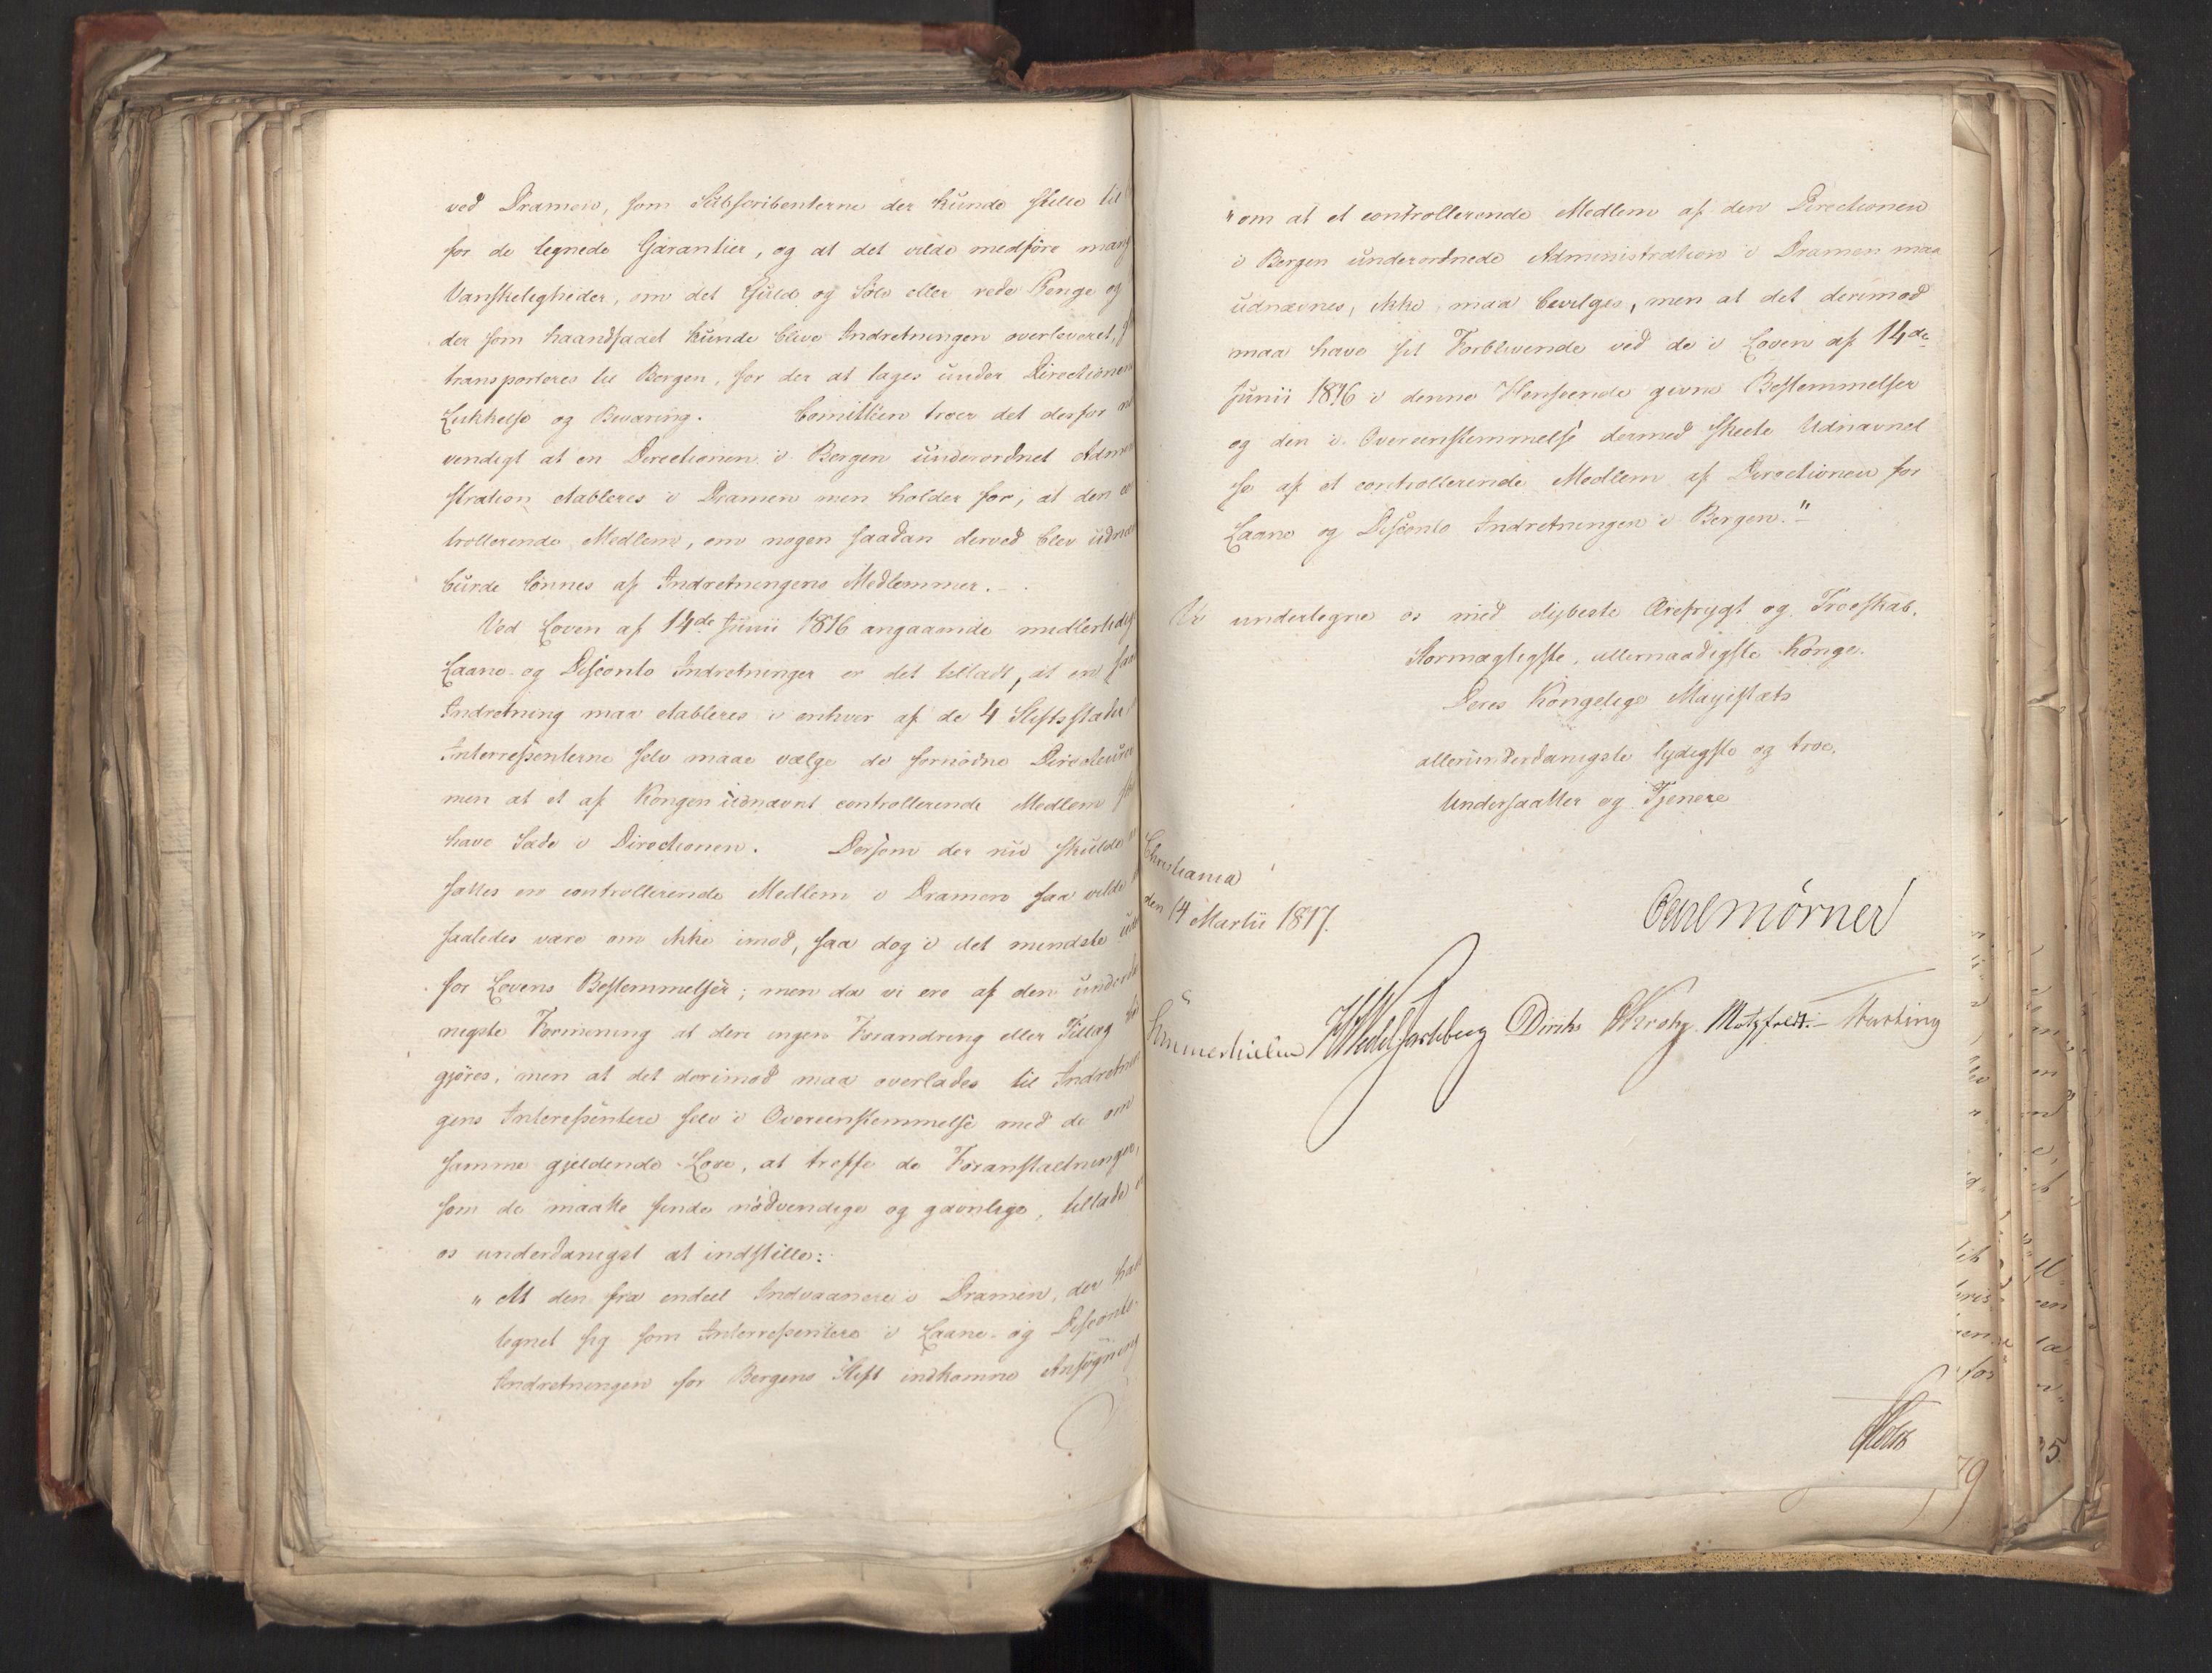 ved Dramen, som Subscribenterne der kunde stille til
for de tegnede Garantier, og at det vilde medføre mang
Vanskeligheder, om det Guld og Sølv eller rede Penge og
der som haandfaaet kunde blive Indretningen overleveret,
transporteres til Bergen, for der at tages under Directionen
Lukkelse og Bevaring. Comitteen troer det derfor
vendigt at en Directionen i Bergen underordnet Admin
stration etableres i Dramen men holder for, at den
trollerende Medlem, om nogen saadan derved blev udnæ
burde lønnes af Indretningens Medlemmer.
Ved Loven af 14de Junii 1816 angaaende midlertidig
Laane- og Disconto Indretninger er det tilladt, at en saa
Indretning maa etableres i enhver af de 4 Stiftsstæder
Interressenterne selv maae vælge de fornødne Directeurer
men at et af Kongen udnævnt controllerende Medlem
have Sæde i Directionen. Dersom der nu skulde
sættes en controllerende Medlem i Dramen saa vilde
saaledes være om ikke imod, saa dog i det mindste
for Lovens Bestemmelser; men da vi ere af den underda
nigste Formening at deri ingen Forandring eller Tillæg
gjøres, men at det derimod maa overlades til Indretnin
gens Interessentere selv i Overeenstemmelse med de om
samme gjeldende Love, at treffe de Foranstaltninger,
som de maatte finde nødvendige og gavnlige, tillade
os underdanigst at indstille:
" At den fra endeel Indvaanere i Dramen, der have
tegnet sig som Interressentere i Laane- og Disconto-
Indretningen for Bergens Stift indkomne Ansøgning
" om at et controllerende Medlem af den Directionen
i Bergen underordnede Administration i Dramen maa
udnævnes, ikke maa bevilges, men at det derimod
maa have sit Forblivende ved de i Loven af 14de
Junii 1816 i denne Henseende givne Bestemmelser
og den i Overeenstemmelse dermed skeete Udnævnel
se af et controllerende Medlem af Directionen for
Laane og Disconto Indretningen i Bergen."
Vi undertegne os med dybeste Ærefrygt og Troeskab.
Stormægtigste, allernaadigste Konge.
Deres Kongelige Majestæts
allerunderdanigste lydigste og troe,
Undersaatter og Tjenere
Christiania
den 14 Martii 1817.
Carl Mörner
Sommerhielm HWedel Jarlsberg Diriks CKrohg. Motzfeldt.
Holst
79
35